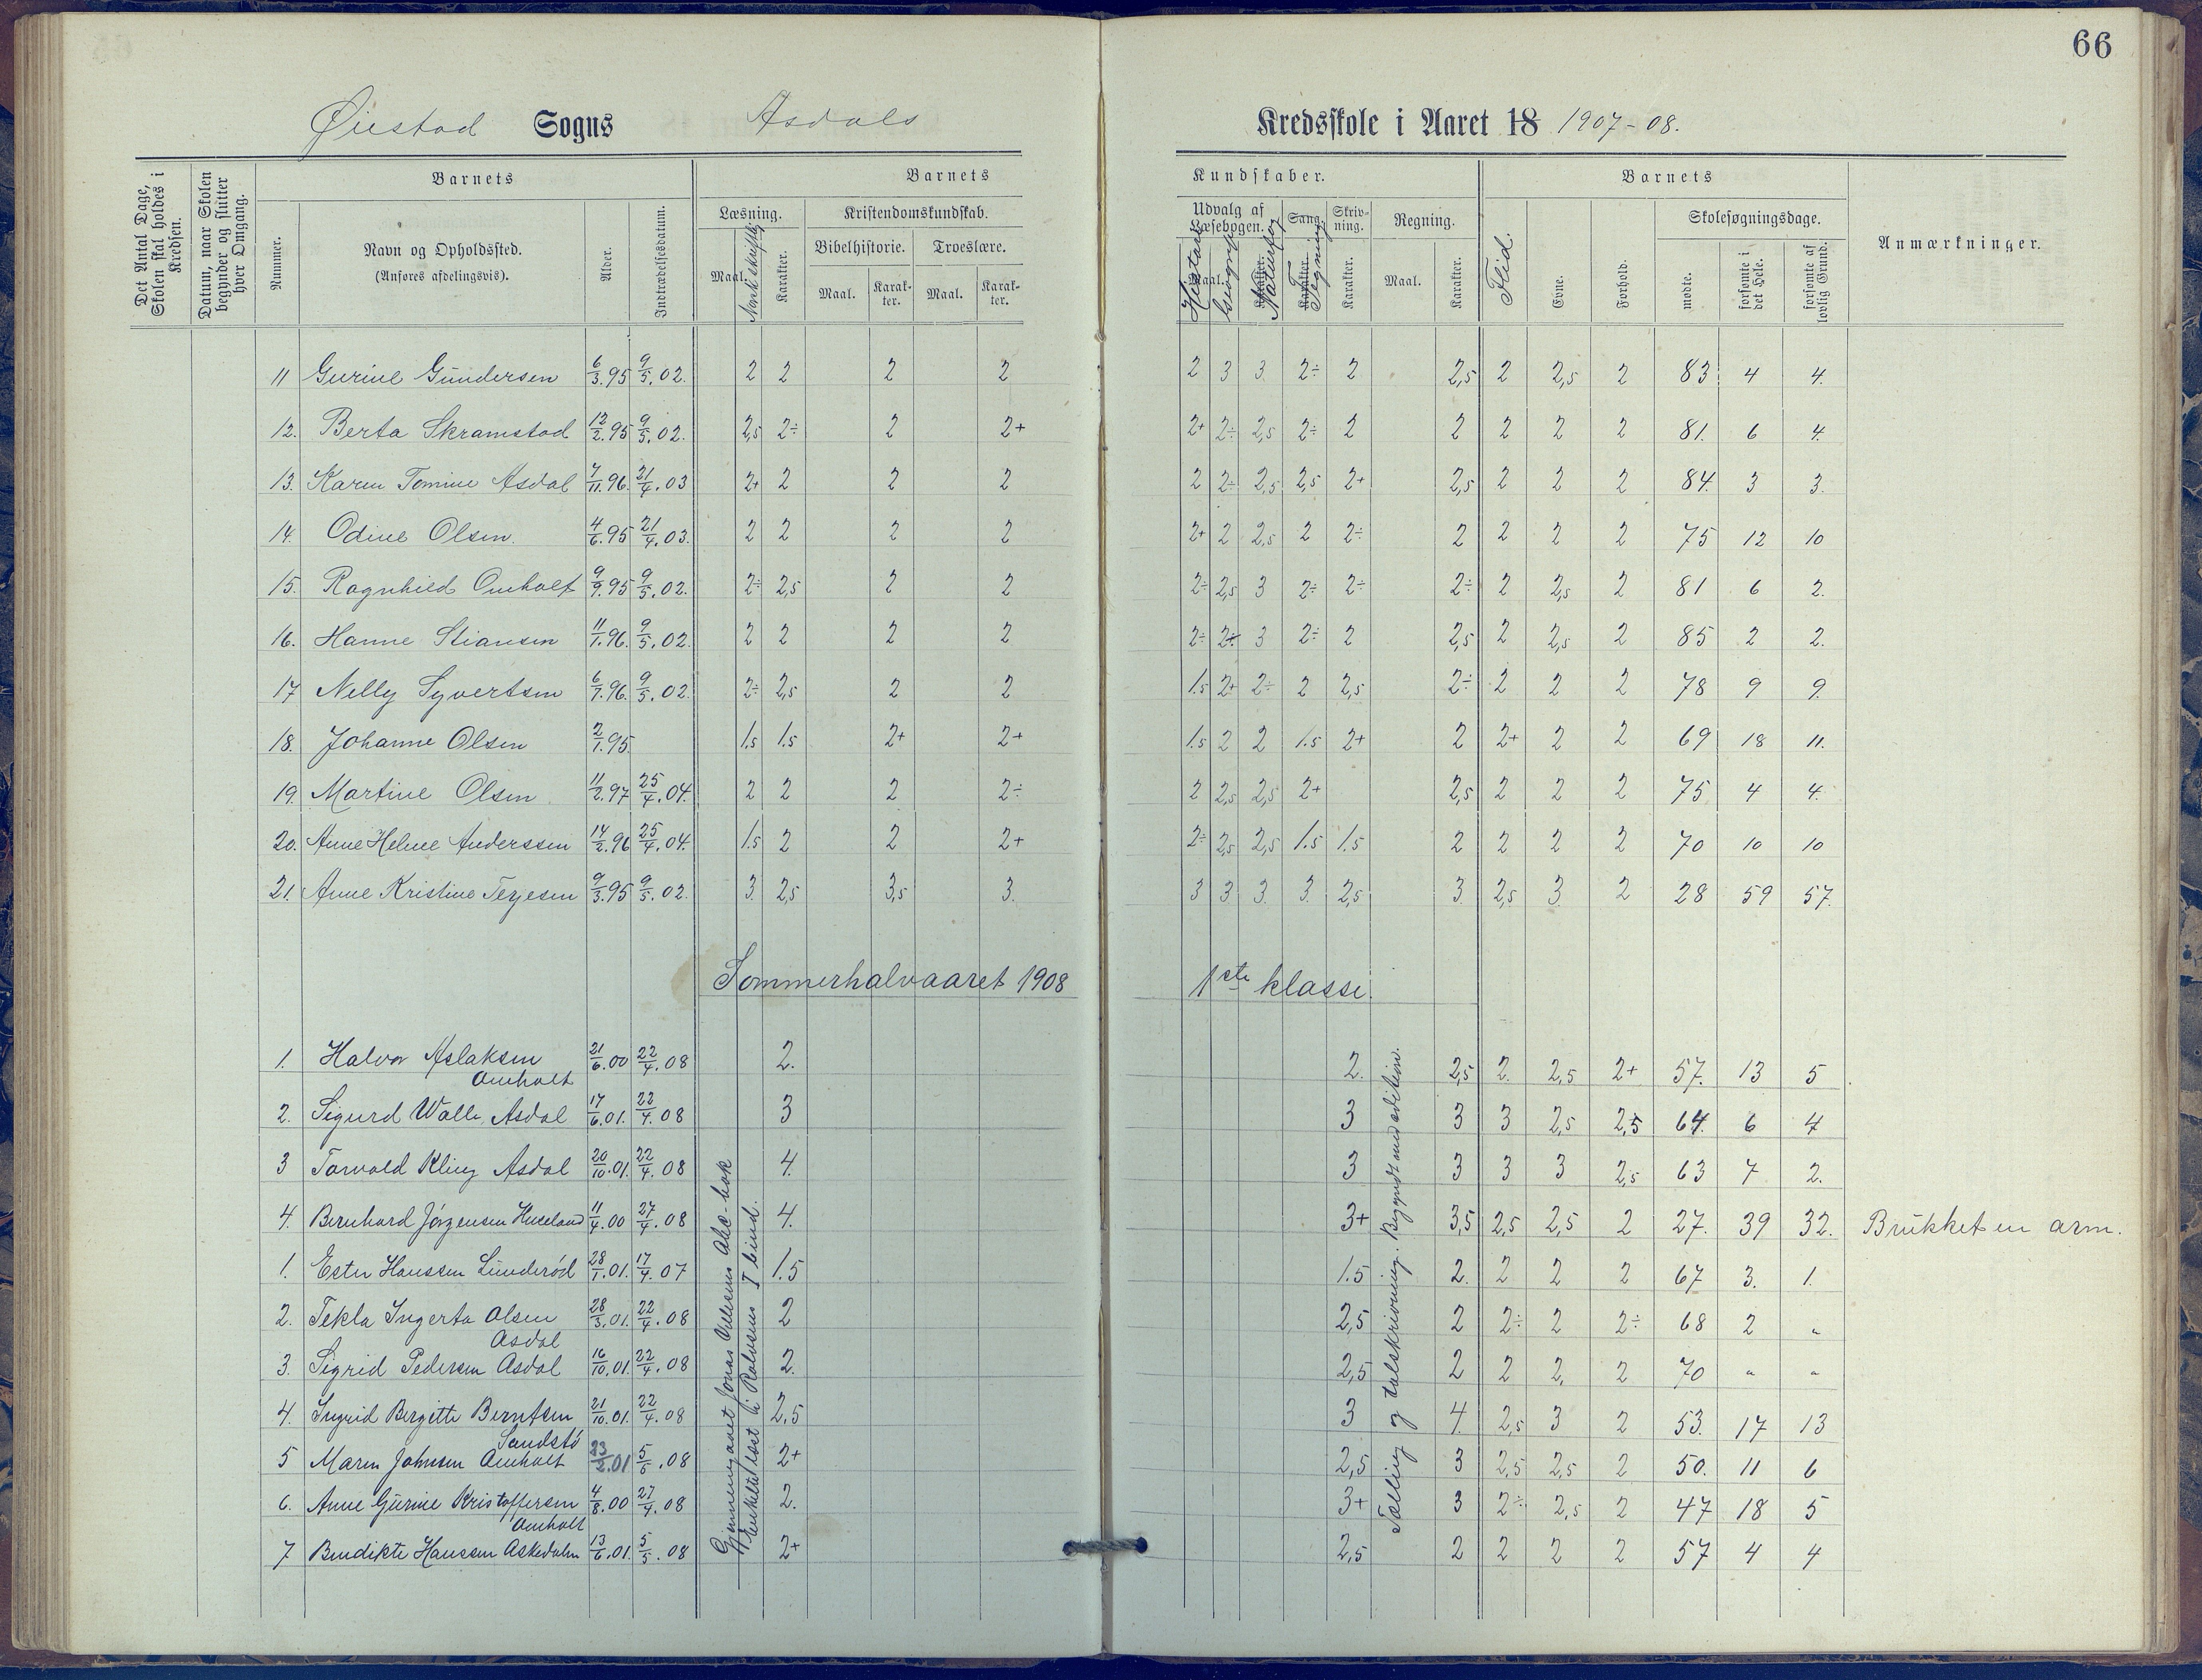 66
Øiestad Sogns Asdals Kredsskole i Aaret 18 1907-08.
Det Antal Dage, Skolen skal holdes i Kredsen.
Datum, naar Skolen begynder og slutter hver Omgang.
Barnets
Nummer.
Navn og Opholdssted.
(Anføres afdelingsvis).
Alder.
Indtrædelsesdatum.
Barnets Kundskaber.
Læsning.
Maal.
Norsk skriftlig
Karakter.
Kristendomskundskab.
Bibelhistorie.
Maal.
Karakter.
Troeslære.
Maal.
Karakter.
Udvalg af Læsebogen.
Maal.
Historie
Geografi
Karakter.
Naturfag
Sang.
Karakter.
Tegning
Skrivning.
Karakter.
Regning.
Maal.
Karakter.
Barnets
Flid.
Evne.
Forhold.
Skolesøgningsdage.
mødte.
forsømte i det Hele.
forsømte af lovlig Grund.
Anmærkninger.
11 Gurine Gundersen 6/3.95 9/5.02. 2 2 2 2 2 3 3 2÷ 2 2,5 2 2,5 2 83 4 4.
12. Berta Skramstad 12/2.95 9/5.02. 2,5 2÷ 2 2+ 2+ 2÷ 2,5 2÷ 2 2 2 2 2 81. 6 4.
13. Karen Tomine Asdal 7/11.96. 21/4.03 2+ 2 2 2 2 2÷ 2,5 2,5 2+ 2,5 2 2 2 84. 3 3.
14. Odine Olsen. 4/6.95 21/4.03. 2 2 2 2 2+ 2 2,5 2 2÷ 2 2 2 2 75 12 10
15. Ragnhild Omholt 9/9.95 9/5.02. 2÷ 2,5 2 2 2÷ 2,5 3 2÷ 2÷ 2÷ 2 2,5 2 81 6 2.
16. Hanne Stiansen 11/1.96. 9/5.02. 2 2 2 2 2÷ 2÷ 3 2÷ 2 2,5 2 2,5 2 85 2 2.
17 Nelly Syvertsen 6/7.96. 9/5.02 2÷ 2,5 2 2 1.5 2+ 2÷ 2 2,5 2÷ 2 2 2 78 9 9.
18. Johanne Olsen 2/1.95 1.5 1.5 2+ 2+ 1.5 2 2 1.5 2+ 2 2+ 2 2 69 18 11.
19. Martine Olsen 11/2.97 25/4.04. 2 2 2 2÷ 2 2,5 2,5 2+ 2,5 2 2 2 75 4 4.
20. Anne Helene Anderssen 14/2.96 25/4.04. 1.5 2 2 2+ 2÷ 2,5 2,5 1.5 1.5 2 2 2 2 70 10 10
21. Anne Kristine Terjesen 9/3.95 9/5.02. 3. 2,5 3,5 3. 3 3 3. 3. 2,5 3. 2,5 3. 2 28 59 57.
Sommerhalvaaret 1908 1ste klasse.
1. Halvor Aslaksen Omholt 21/6.00 22/4.08 2. 2. 2,5 2. 2,5 2+ 57. 13 5
2. Sigurd Walle, Asdal 17/6.01. 22/4.08 3 3 3 3 2,5 2,5 64. 6 4
3 Torvald Kling Asdal 20/10.01. 22/4.08 4. 3 3 3 3 2,5 63 7 2.
4. Bernhard Jørgensen Huseland 11/4.00 27/4.08 4. 3+ 3,5 2,5 2,5 2 27. 39 32. Brukket en arm.
1. Ester Hanssen Lunderød 28/1.01. 17/4.07 1.5 1.5 2. 2 2 2 67 3. 1.
2. Tekla Ingerta Olsen Asdal 28/3.01. 22/4.08 2 2,5 2 2÷ 2 2÷ 68 2 "
3. Sigrid Pedersen Asdal 16/10.01. 22/4.08 2. 2,5 2 2 2, 2 70 " "
4. Ingrid Bergitte Berntsen Sandstø 21/10.01. 22/4.08 2,5 3 4. 2,5 3 2 53. 17 13
5 Maren Johnsen Omholt 23/2.01 5/5.08 2+ 2,5 3 2,5 2,5 2 50. 11 6
6. Anne Gurine Kristoffersen Omholt 4/8.00 27/4.08 2. 3+ 3 2÷ 2,5 2 47 18 5
7 Bendikte Hanssen Askedalen 13/6.01. 5/5.08 2+ 2,5 2 2 2 2 57 4 4
Gjennemgaaet Jonas Vellesens Abc-bok
Enkelte læst i Rolvsens I bind.
Tælling og talskrivning. Begyndt med addition.